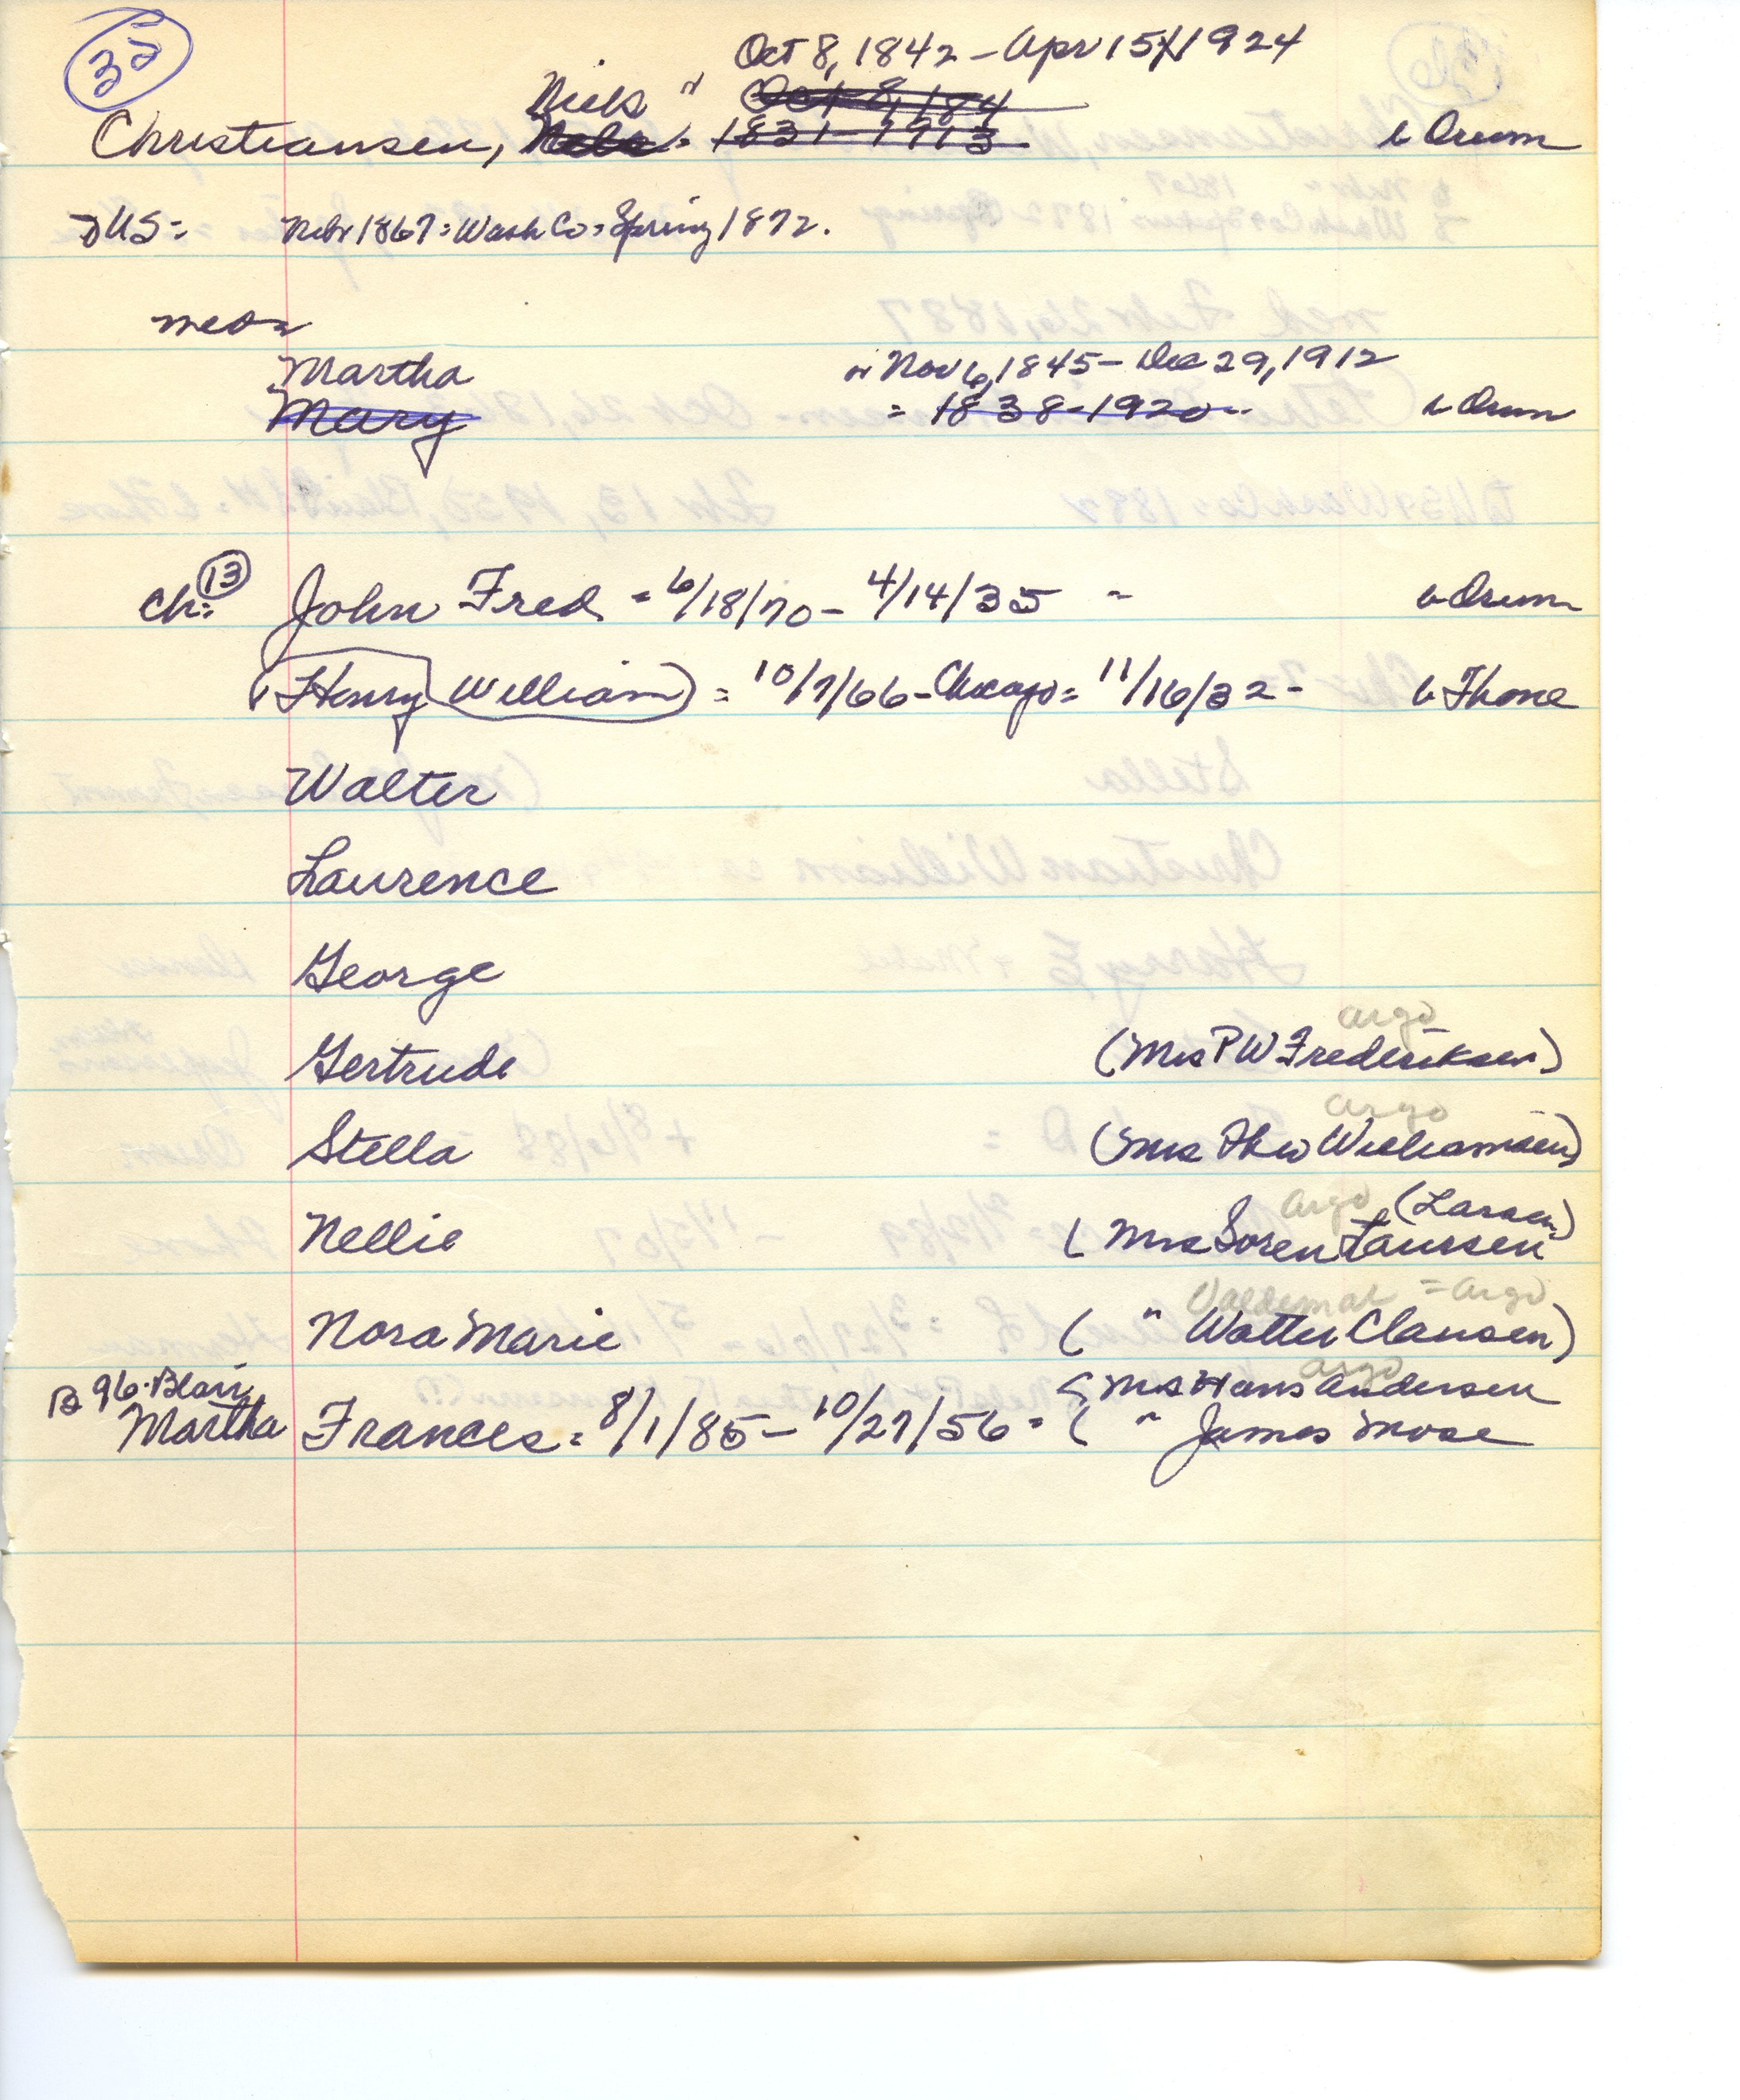 35
Oct 8, 1842 - Apr 15, 1924
Niels " Oct 8, 184
Christiansen, Nels = 1831-1913 b Orum
→ US = Nebr 1867 = Wash Co = Spring 1872.
Martha or Nov 6, 1845 - Dec 29, 1912
Mary = 1838-1920 - b Orum
Ch: 13 John Fred = 6/18/70 - 4/14/35 - b Orum
(Henry William) = 10/7/66 - Chicago = 11/16/32 - b Thone
Walter
Laurence
George
argo
Gertrude (Mrs PW Frederiksen)
argo
Stella (Mrs Theo Williamsen)
argo (Larsen)
Nellie (Mrs Soren Laurssen
Valdemar = argo
Nora Marie ( " Walter Clausen)
argo
B 96 - Blair (Mrs Hans Andersen
Martha Frances = 8/1/85 - 10/27/56 = ( " James Mose